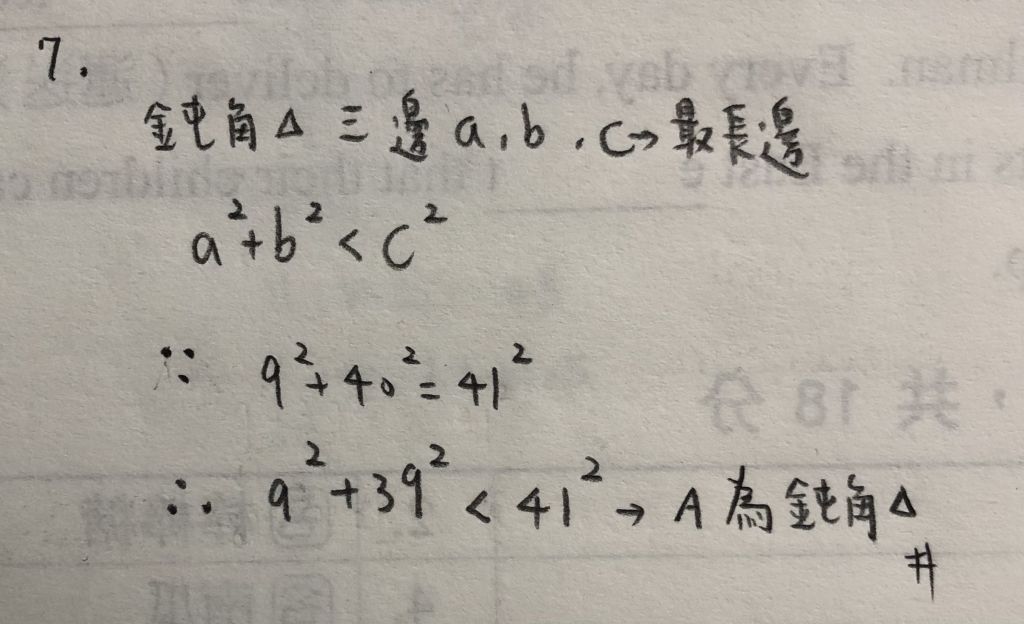 7.
鈍角△三邊a,b,c→最長邊
a²+b²<c²
∵ 9²+40²=41²
∴ 9²+39²<41²→A為鈍角△
#